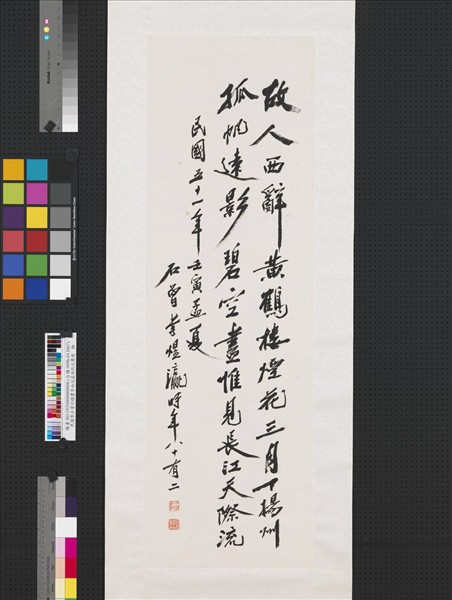 故人西辭黃鶴樓煙花三月下揚州
孤帆遠影碧空盡惟見長江天際流
民國五十一年壬寅孟夏
石曾李煜瀛時年八十有二